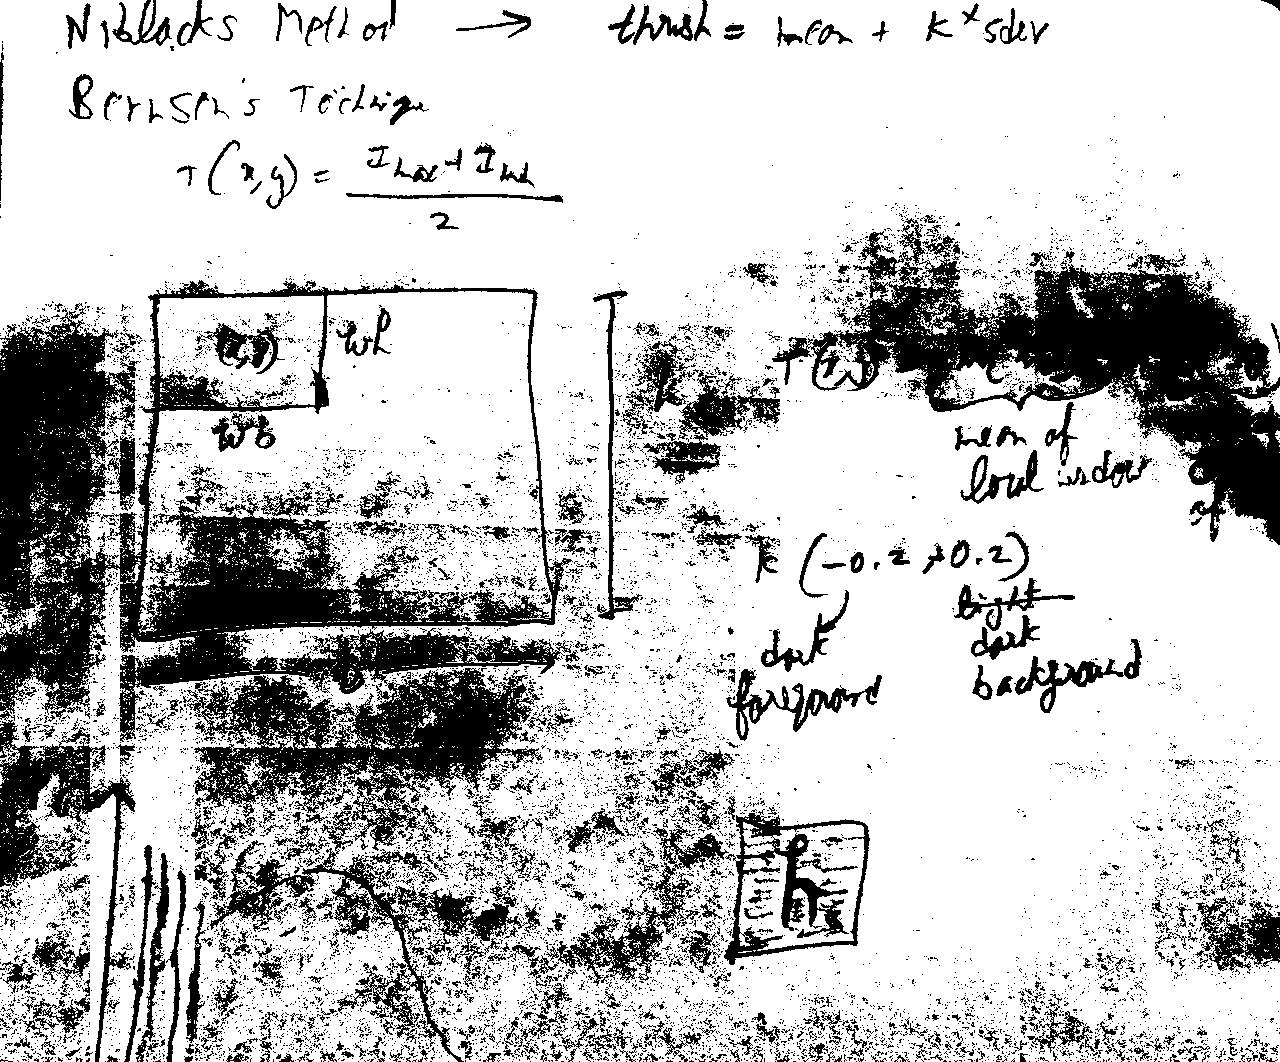 Niblacks Method → thrush = mean + k*sdev
Bernsen's Technique
T(x,y) = Imax + Imin / 2
(x,y)
wh
wb
h
b
T(x,y)
mean of
local window
of
k (-0.2, +0.2)
dark
foreground
light
dark
background
h